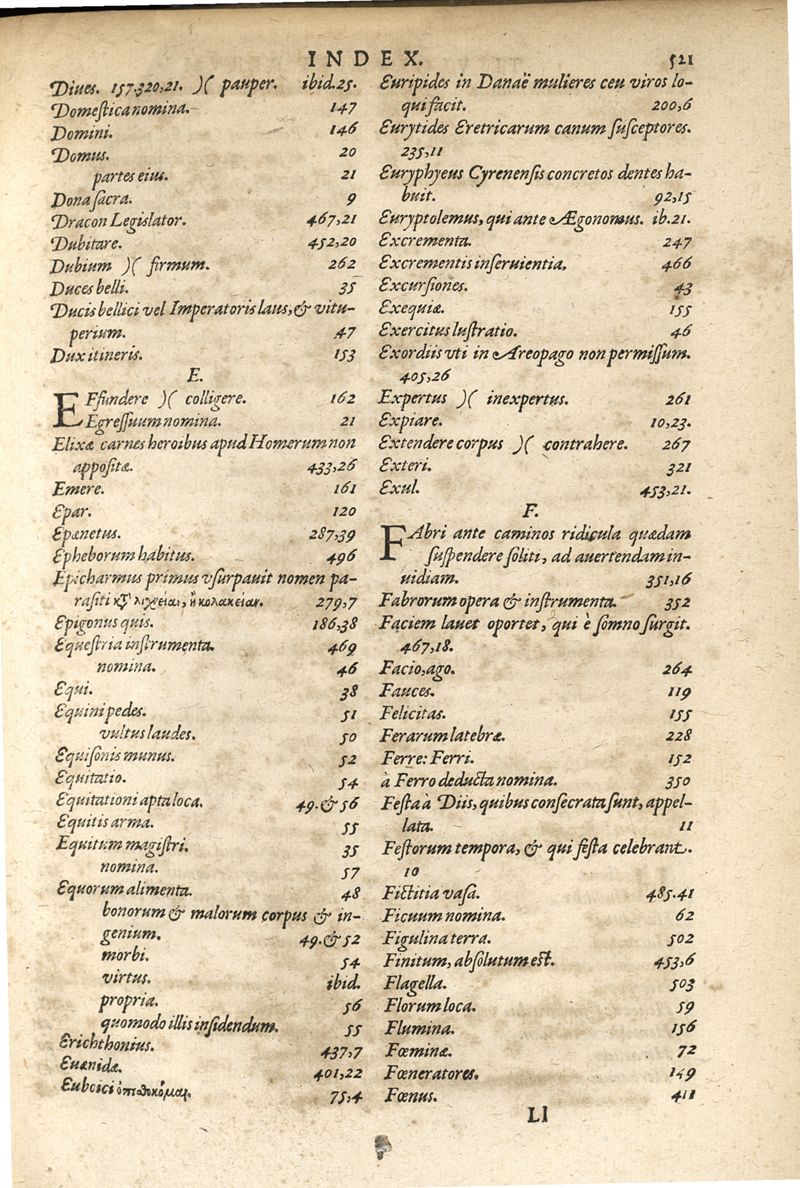 INDEX. 521
Diues. 157.320,21. )( pauper. ibid.25.
Domestica nomina. 147
Domini. 146
Domus. 20
partes eius. 21
Dona sacra. 9
Dracon Legislator. 467,21
Dubitare. 452,20
Dubium )( firmum. 262
Duces belli. 35
Ducis bellici vel Imperatoris laus, & vitu-
perium. 47
Dux itineris. 153
E.
EFfundere )( colligere. 162
Egressuum nomina. 21
Elixæ carnes heroibus apud Homerum non
appositæ. 433,26
Emere. 161
Epar. 120
Epænetus. 287,39
Epheborum habitus. 496
Epicharmus primus vsurpauit nomen pa-
rasiti κỳ λιχείαν, ἢ κολακείαν. 279,7
Epigonus quis. 186,38
Equestria instrumenta. 469
nomina. 46
Equi. 38
Equini pedes. 51
vultus laudes. 50
Equisonis munus. 52
Equitatio. 54
Equitationi apta loca. 49.& 56
Equitis arma. 55
Equitum magistri. 35
nomina. 57
Equorum alimenta. 48
bonorum & malorum corpus & in-
genium. 49.& 52
morbi. 54
virtus. ibid.
propria. 56
quomodo illis insidendum. 55
Erichthonius. 437,7
Euænidæ. 401,22
Euboici 75,4
Euripides in Danaë mulieres ceu viros lo-
qui facit. 200,6
Eurytides Eretricarum canum susceptores.
235,11
Euryphyeus Cyrenensis concretos dentes ha-
buit. 92,15
Euryptolemus, qui ante Ægonomus. ib.21.
Excrementa. 247
Excrementis inseruientia. 466
Excursiones. 43
Exequiæ. 155
Exercitus lustratio. 46
Exordiis vti in Areopago non permissum.
405,26
Expertus )( inexpertus. 261
Expiare. 10,23.
Extendere corpus )( contrahere. 267
Exteri. 321
Exul. 453,21.
F.
FAbri ante caminos ridicula quædam
suspendere soliti, ad auertendam in-
uidiam. 351,16
Fabrorum opera & instrumenta. 352
Faciem lauet oportet, qui è somno surgit.
467,18.
Facio, ago. 264
Fauces. 119
Felicitas. 155
Ferarum latebræ. 228
Ferre: Ferri. 152
à Ferro deducta nomina. 350
Festa à Diis, quibus consecrata sunt, appel-
lata. 11
Festorum tempora, & qui festa celebrant.
10
Fictitia vasa. 485.41
Ficuum nomina. 62
Figulina terra. 502
Finitum, absolutum est. 453,6
Flagella. 503
Florum loca. 59
Flumina. 156
Fœminæ. 72
Fœneratores. 149
Fœnus. 411
Ll